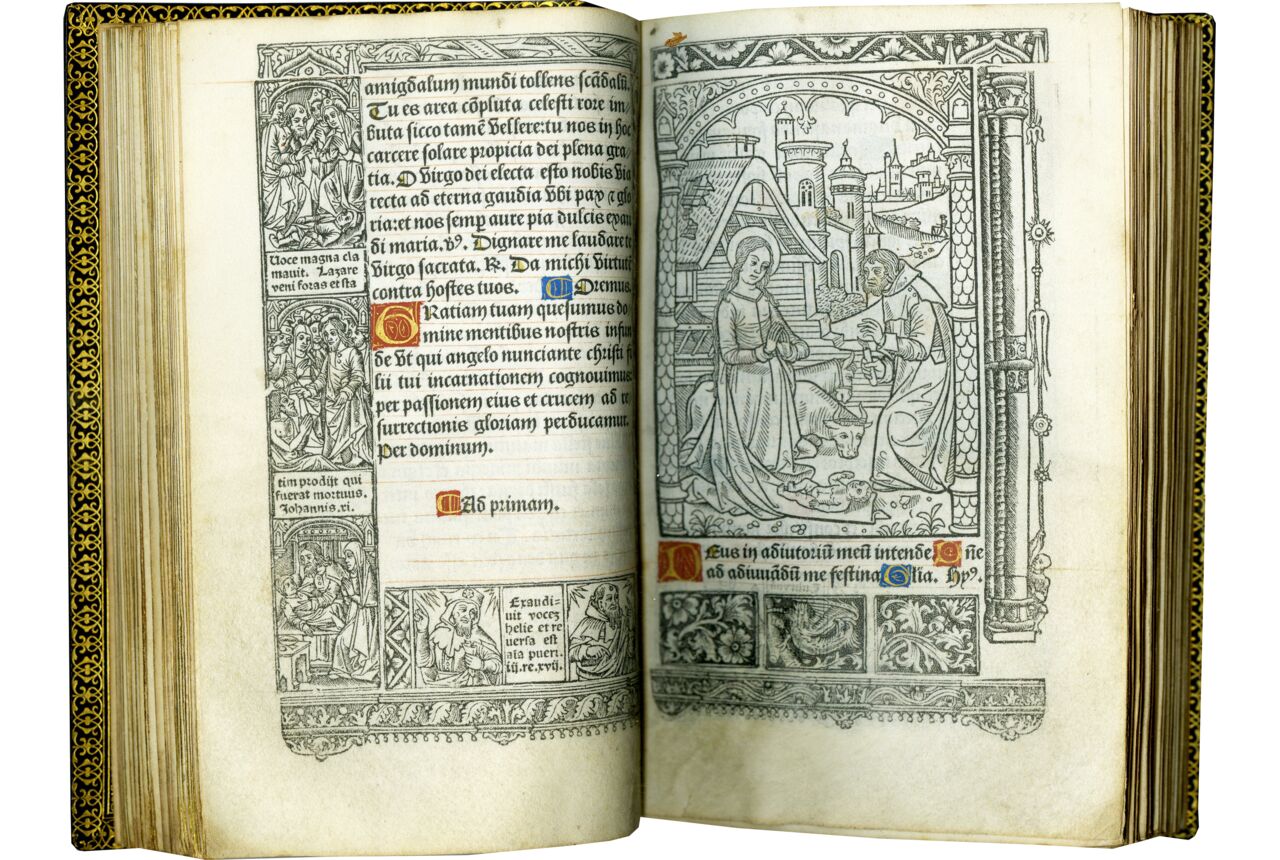 amigdalum mundi tollens scãdalũ.
Tu es area cõpluta celesti rore im/
buta sicco tamẽ vellere: tu nos in hoc
carcere solare propicia dei plena gra/
tia. O virgo dei electa esto nobis via
recta ad eterna gaudia vbi pax ⁊ glo
ria: et nos semꝑ aure pia dulcis exau
di maria. v̾. Dignare me laudare te
virgo sacrata. R̷. Da michi virtutẽ
contra hostes tuos. Oremus.
GRatiam tuam quesumus do
mine mentibus nostris infun
de vt qui angelo nunciante christi fi
lii tui incarnationem cognouimus
per passionem eius et crucem ad re
surrectionis gloriam perducamur.
Per dominum.
Ad primam.
Uoce magna cla
mauit. Lazare
veni foras et sta
tim prodijt qui
fuerat mortuus.
Johannis. xi.
Exaudi=
uit vocez
helie et re
uersa est
aĩa pueri.
iij. re. xvij.
DEus in adiutoriũ meũ intende. Dñe
ad adiuuãdũ me festina. Glia. Hyꝰ.